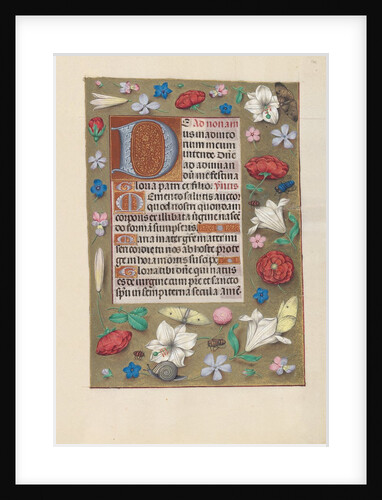 Ad nonam
us in adiuto
rium meum
intende Dñe
ad adiuuan
dū me festina
Gloria patri et filio. Ymnꝰ
Memento salutis auctor
quod nostri quondam
corporis ex illibata uirgine nasce
do formā sumpseris
Maria mater gratie mater mi
sericordie tu nos ab hoste prote
ge in hora mortis suscipe
Gloria tibi dñe qui natus
es de uirgine cum patre et sancto
spū in sempiterna secula amē